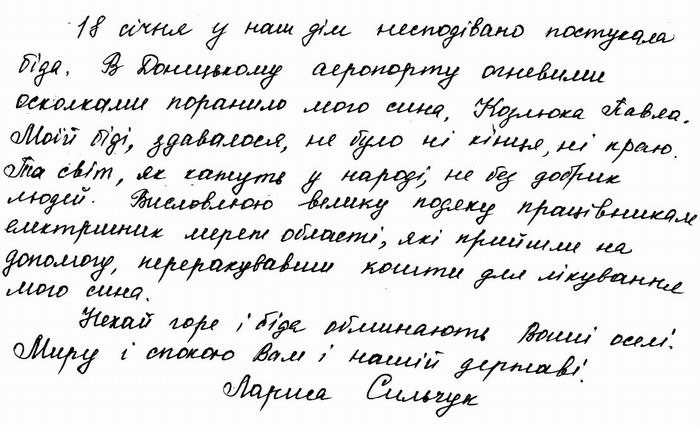 18 січня у наш дім несподівано постукала
біда. В Донецькому аеропорту огневими
осколками поранило мого сина, Козлюка Павла.
Моїй біді, здавалося, не було ні кінця, ні краю.
Та світ, як кажуть у народі, не без добрих
людей. Висловлюю велику подяку працівникам
електричних мереж області, які прийшли на
допомогу, перерахувавши кошти для лікування
мого сина.
Нехай горе і біда обминають Ваші оселі.
Миру і спокою Вам і нашій державі.
Лариса Сильчук